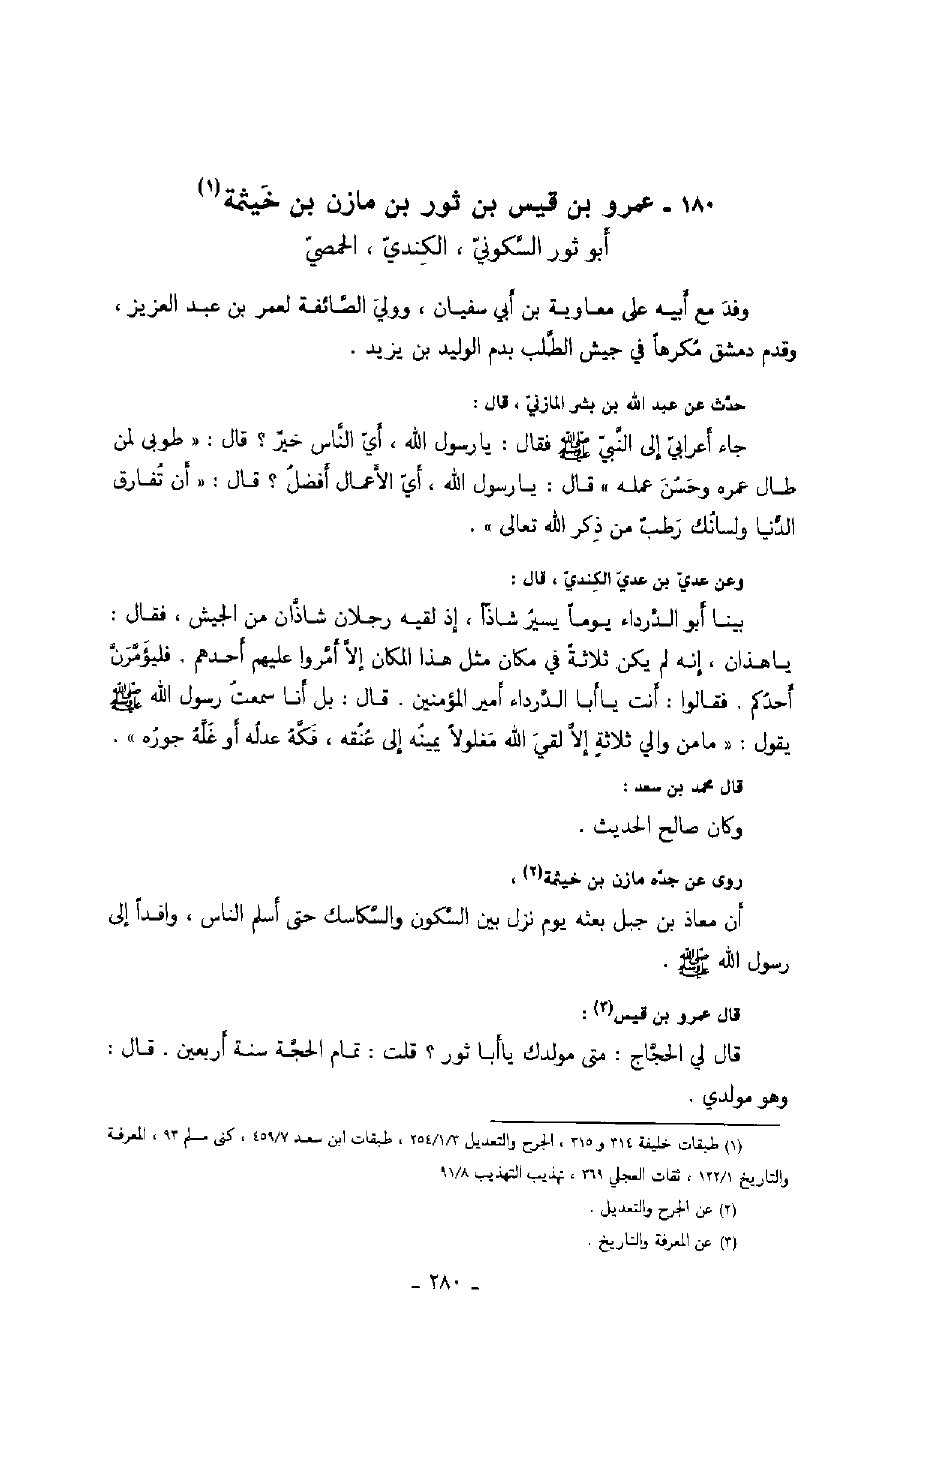 ١٨٠ ـ عمرو بن قيس بن ثور بن مازن بن خَيثمة(١)
أبو ثور السَّكونيّ ، الكِنديّ ، الحمصيّ
وفدَ مع أبيـه على معـاويـة بن أبي سفيـان ، ووليَ الصَّـائفـة لعمر بن عبـد العزيز ،
وقدم دمشق مُكرهاً في جيش الطَّلب بدم الوليد بن يزيد .
حدّث عن عبد الله بن بشر المازنيّ ، قال :
جاء أعرابيّ إلى النَّبيّ ﷺ فقال : يارسول الله ، أيّ النَّاس خيرٌ ؟ قال : « طوبى لمن
طـال عمره وحَسُنَ عملـه » قـال : يـارسول الله ، أيّ الأعمـال أفضلُ ؟ قـال : « أن تُفـارق
الدُّنيا ولسانُك رَطبٌ من ذِكر الله تعالى » .
وعن عديّ بن عديّ الكِنديّ ، قال :
بينـا أبو الـدَّرداء يـومـاً يسيرُ شـاذّاً ، إذ لقيـه رجـلان شـاذَّان من الجيش ، فقـال :
يـاهـذان ، إنـه لم يكن ثلاثـةٌ في مكان مثل هـذا المكان إلاَّ أمَّروا عليهم أحـدهم . فليؤَمَّرَنَّ
أحدُكم . فقـالوا : أنت يـاأبـا الـدَّرداء أمير المؤمنين . قـال : بل أنـا سمعتُ رسول الله ﷺ
يقول : « مامن والي ثلاثةٍ إلاَّ لقيَ الله مَغلولاً يمينُه إلى عُنُقه ، فَكَّهُ عدلُه أو غَلَّهُ جورُه » .
قال محمد بن سعد :
وكان صالح الحديث .
روى عن جدّه مازن بن خيثمة(٢) ،
أن معـاذ بن جبل بعثه يوم نزل بين السَّكون والسَّكاسك حتى أسلم الناس ، وافـداً إلى
رسول الله ﷺ .
قال عمرو بن قيس(٣) :
قـال لي الحجَّاج : متى مولدك يـاأبـا ثور ؟ قلت : عـام الجمَـاعة سنـة أربعين . قـال :
وهو مولدي .
(١) طبقات خليفة ٣١٤ و ٣١٥ ، الجرح والتعديل ٢٥٤/١/٣ ، طبقات ابن سعد ٤٥٩/٧ ، كنى مسلم ٩٣ ، المعرفة
والتاريخ ١٢٢/١ ، ثقات العجلي ٣٦٩ ، تهذيب التهذيب ٩١/٨
(٢) عن الجرح والتعديل .
(٣) عن المعرفة والتاريخ .
ـ ٢٨٠ ـ